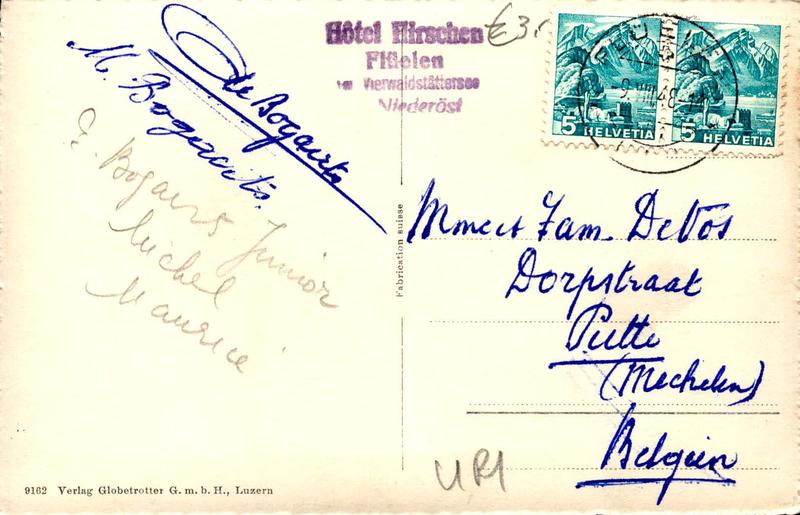 Hôtel Hirschen
Flüelen
am Vierwaldstättersee
Niederöst
€3.
5 HELVETIA
5 HELVETIA
9.VIII.48
de Bogaerts
M. Bogaerts.
Bogaerts Junior
Michel
Maurice
Fabrication suisse
Mr en Fam. De Vos
Dorpstraat
Putte
(Mechelen)
Belgien
URI
9162 Verlag Globetrotter G. m. b. H., Luzern